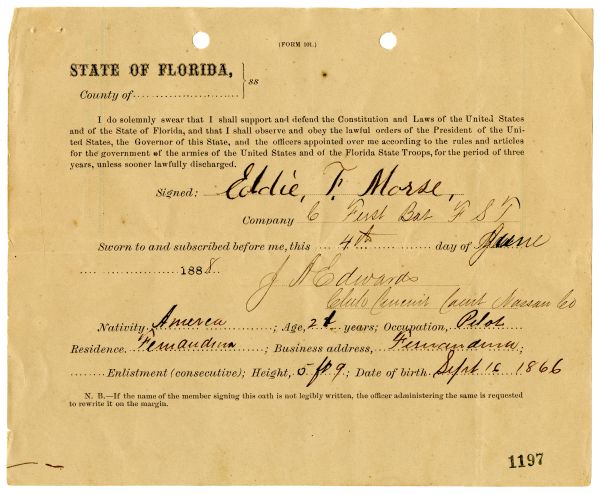 (FORM 101.)
STATE OF FLORIDA,
ss
County of
I do solemnly swear that I shall support and defend the Constitution and Laws of the United States
and of the State of Florida, and that I shall observe and obey the lawful orders of the President of the Uni-
ted States, the Governor of this State, and the officers appointed over me according to the rules and articles
for the government of the armies of the United States and of the Florida State Troops, for the period of three
years, unless sooner lawfully discharged.
Signed: Eddie, F. Morse,
Company C First Bat F S T
Sworn to and subscribed before me, this 4th day of June
1888.
J A Edwards
Clerk Circuit Court Nassau Co
Nativity, America; Age, 21 years; Occupation, Pilot
Residence. Fernandina; Business address, Fernandina;
Enlistment (consecutive); Height, 5 ft 9; Date of birth Sept 16 1866
N. B.—If the name of the member signing this oath is not legibly written, the officer administering the same is requested
to rewrite it on the margin.
1197